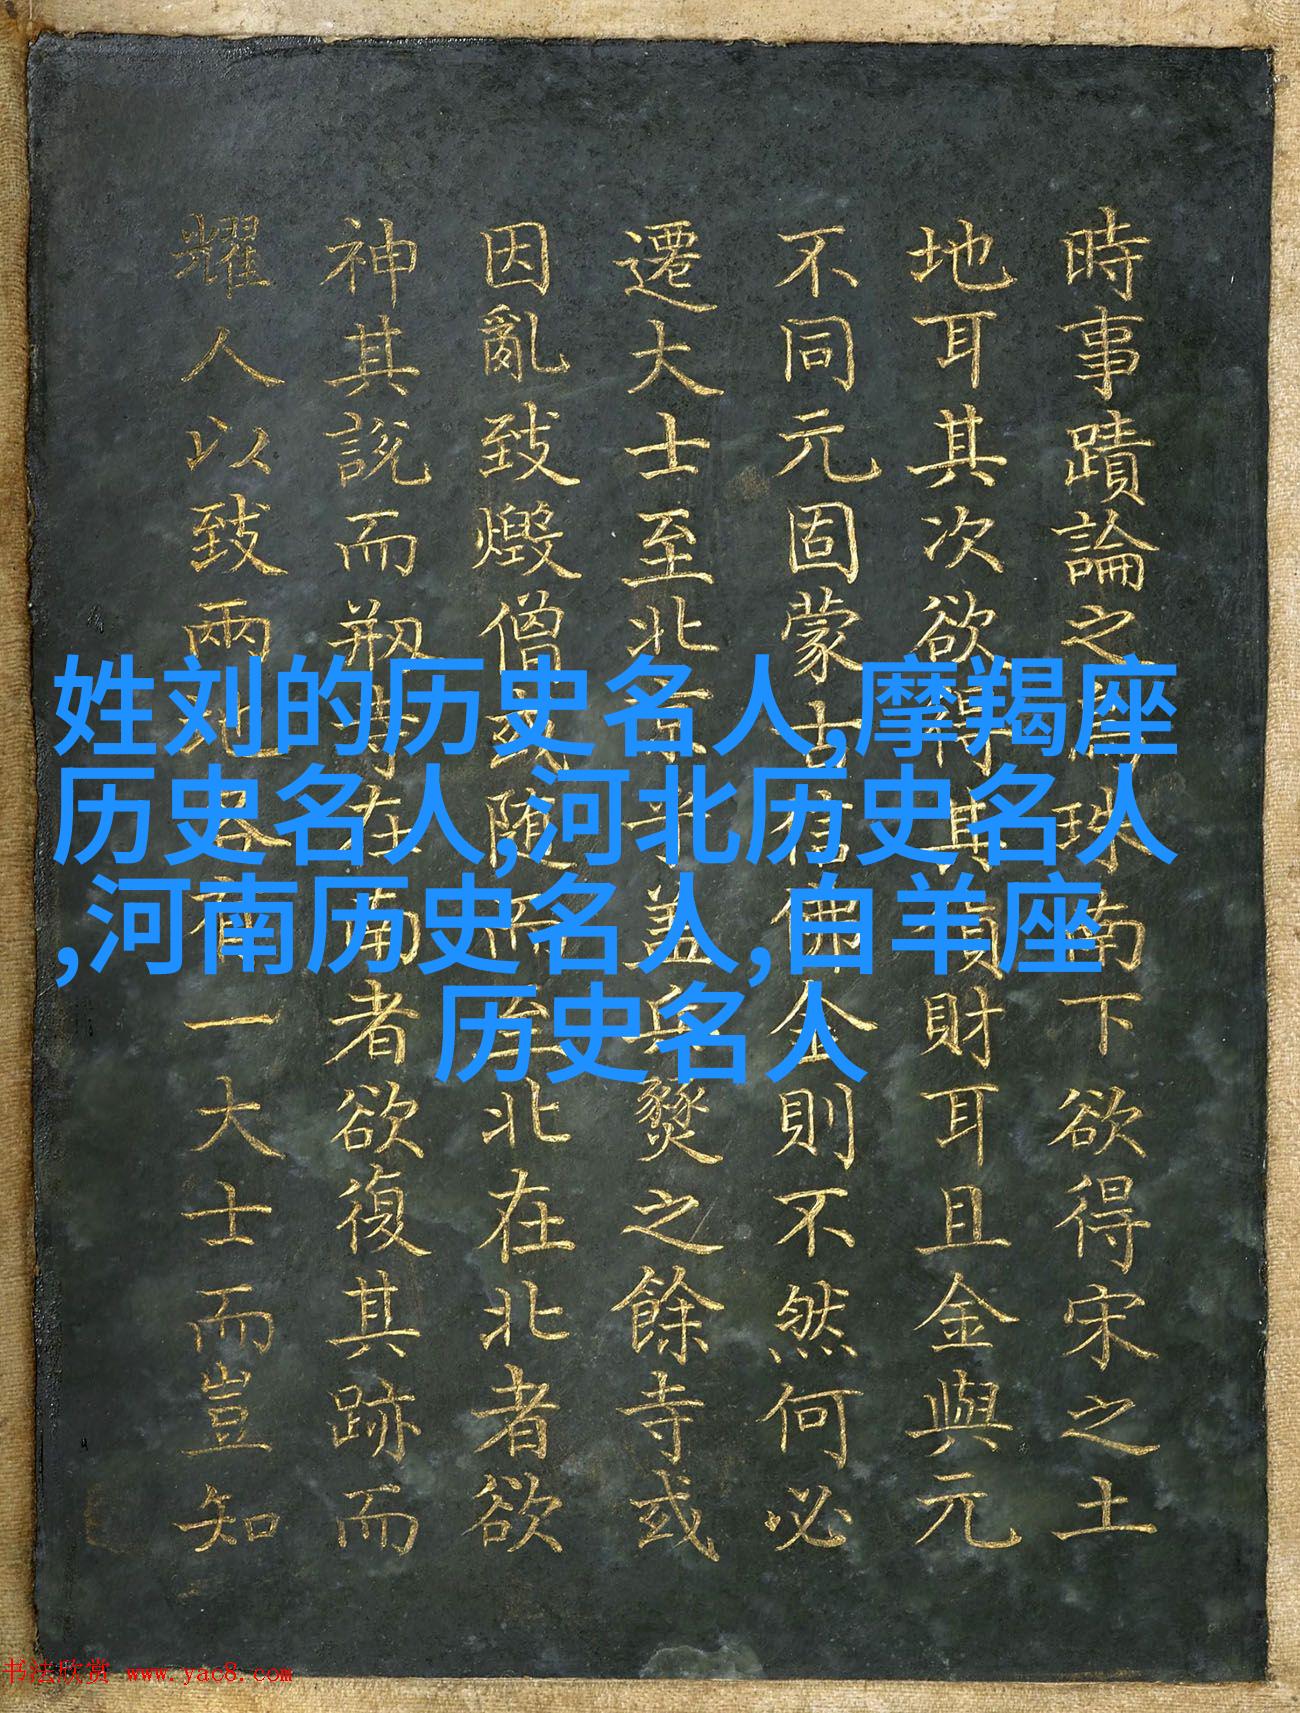 時事蹟論之珠南下欲得宋之土
地耳其次欲得其財耳且金與元
不同元固蒙古信佛金則不然何必
遷大士至北京乎盖兵燹之餘寺或
因亂致燬僧或隨所至北在北者欲
神其說而剏寺在南者欲復其跡而
耀人以致兩地各有一大士而豈知
姓刘的历史名人,摩羯座
历史名人,河北历史名人
,河南历史名人,白羊座
历史名人
书法欣赏 www.yac8.com